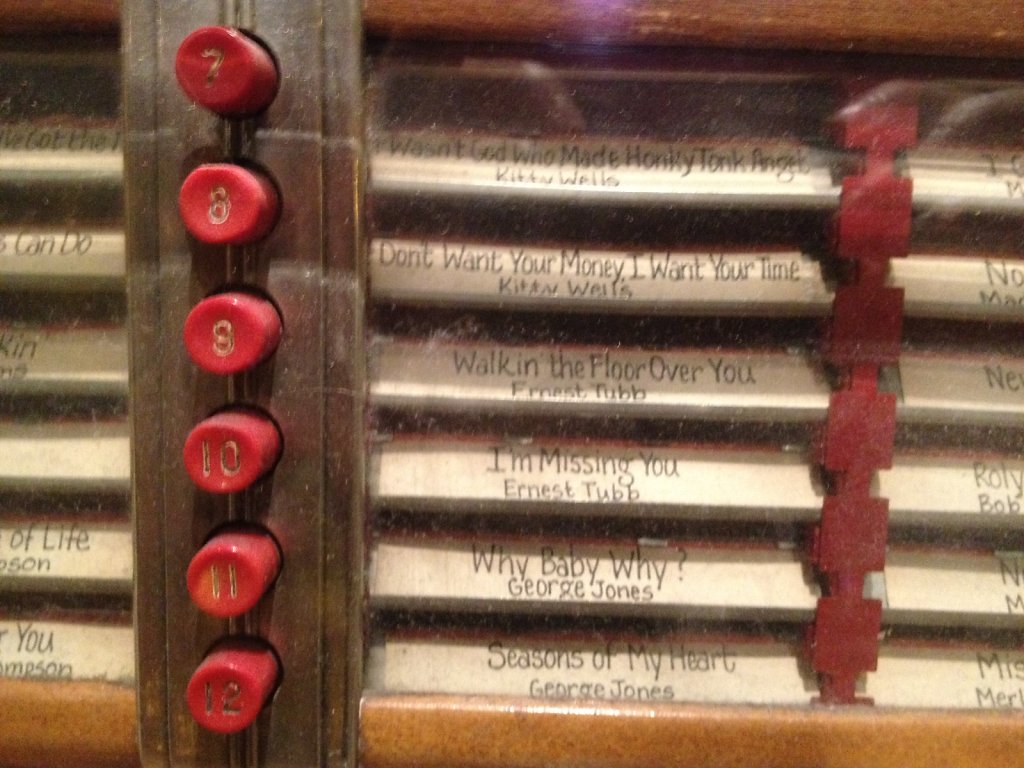 7
8
9
10
11
12
Got the
s Can Do
kin'
ms
of Life
pson
r You
mpson
Wasn't God Who Made Honky Tonk Angel
Kitty Wells
Dont Want Your Money, I Want Your Time
Kitty Wells
Walkin' the Floor Over You
Ernest Tubb
I'm Missing You
Ernest Tubb
Why Baby Why?
George Jones
Seasons of My Heart
George Jones
No
Mac
Ne
Roly
Bob
N
M
Mis
Merl